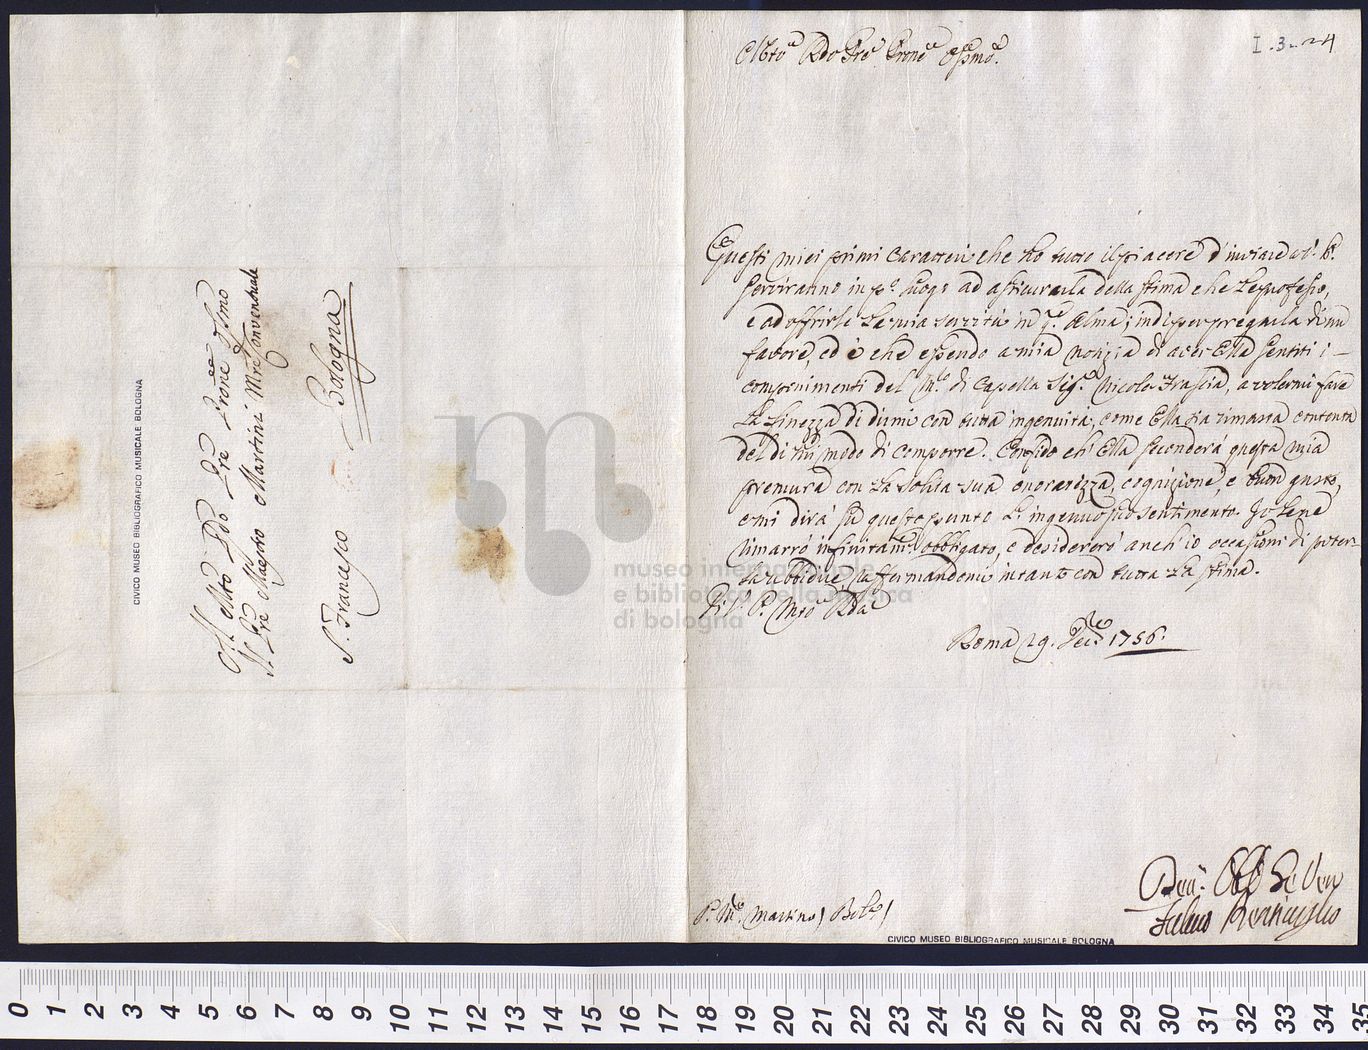 I.3.24
Molto Rdo Pre Prone Ossmo.
Questi miei primi Caratteri che ho tutto il piacere d'inviare a V. P.
serviranno in po. luogo ad assicurarla della stima che Le professo,
e ad offrirle La mia servitù in qa. Alma; indi per pregarla di un
favore, ed è che essendo a mia notizia di aver Ella sentiti i
componimenti del Mro. di Capella Sigr. Nicola, a volermi fare
La finezza di dirmi con tutta ingenuità, come Ella sia rimasta contenta
del di lui modo di comporre. Confido ch'Ella seconderà questa mia
premura con La solita sua onoratezza, cognizione, e buon gusto,
e mi dirà su questo punto L'ingenuo suo sentimento. Io Le ne
rimarrò infinitame. obbligato, e desidererò anch'io occasioni di poter-
La ubbidire, raffermandomi intanto con tutta La stima.
Di V. P. Mto Rda
Roma 29. Dece. 1756.
P. Mro. Martino / Bola /
Al Molto Rdo Pre Prone Ossmo
Il Pre Maestro Martini Mre Conventuale
S. Francesco
Bologna
CIVICO MUSEO BIBLIOGRAFICO MUSICALE BOLOGNA
CIVICO MUSEO BIBLIOGRAFICO MUSICALE BOLOGNA
museo internazionale
e biblioteca della musica
di bologna
0 1 2 3 4 5 6 7 8 9 10 11 12 13 14 15 16 17 18 19 20 21 22 23 24 25 26 27 28 29 30 31 32 33 34 35